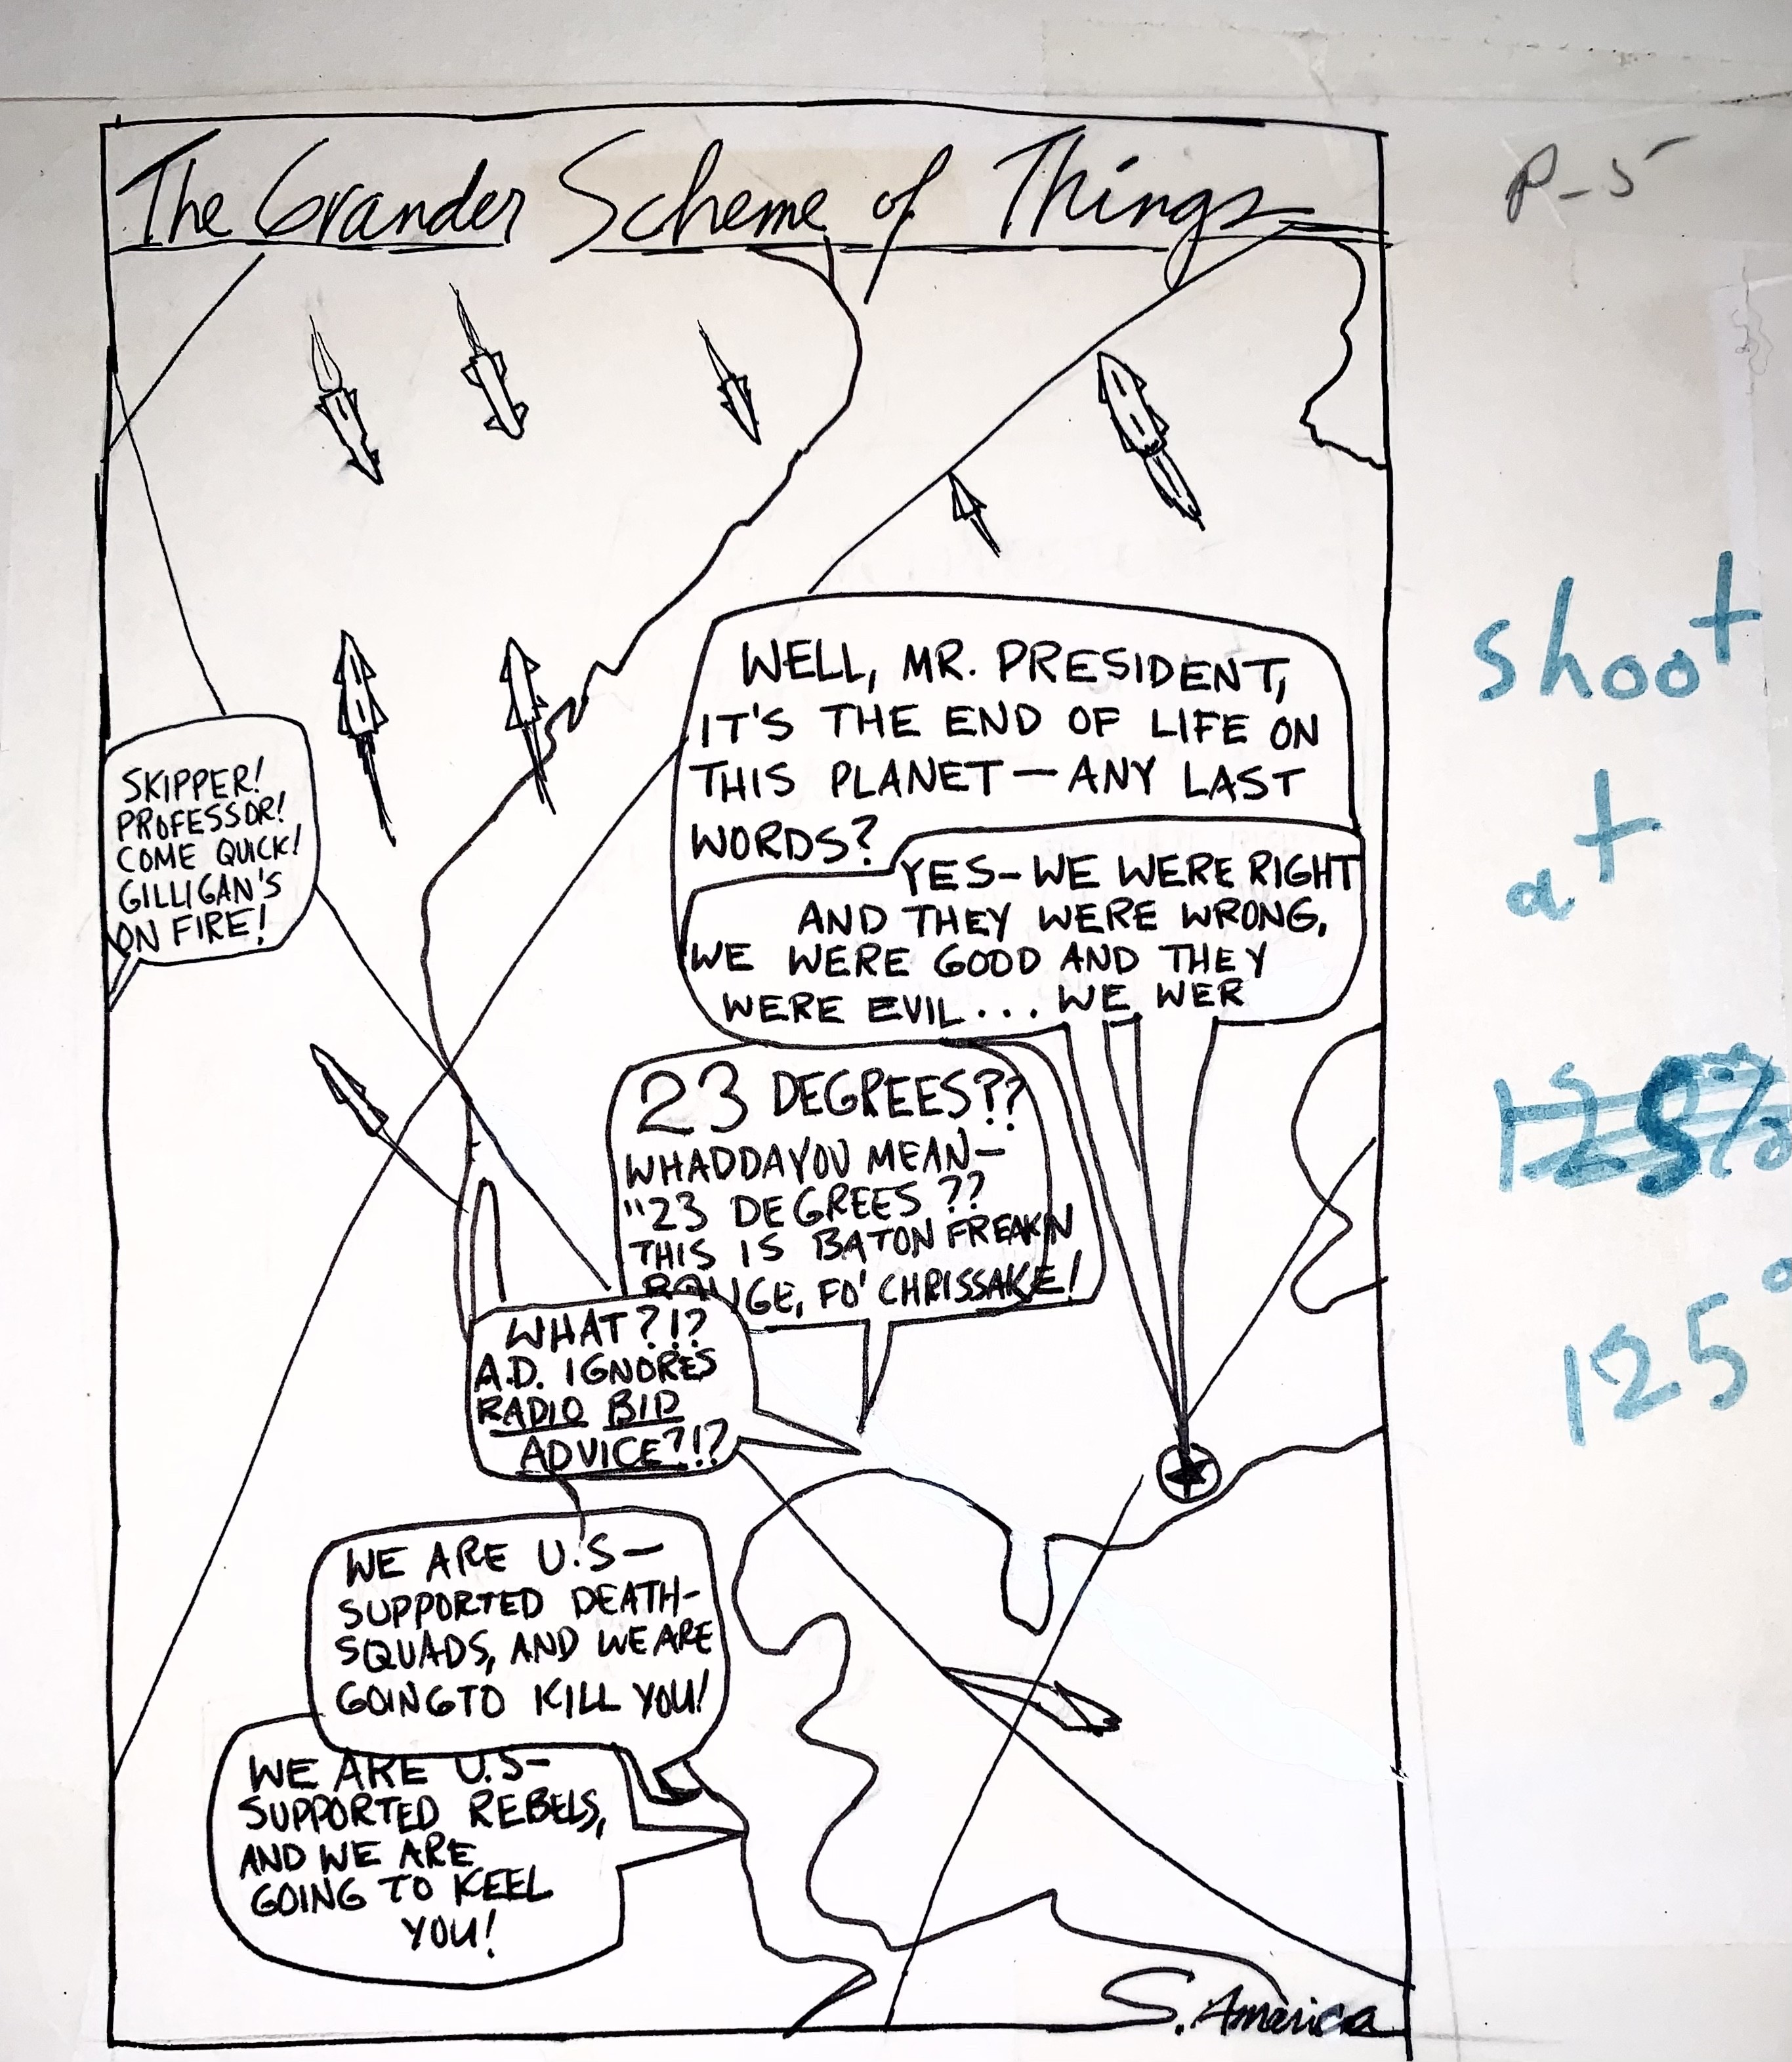 The Grander Scheme of Things
P-5
SKIPPER!
PROFESSOR!
COME QUICK!
GILLIGAN'S
ON FIRE!
WELL, MR. PRESIDENT,
IT'S THE END OF LIFE ON
THIS PLANET — ANY LAST
WORDS?
YES- WE WERE RIGHT
AND THEY WERE WRONG,
WE WERE GOOD AND THEY
WERE EVIL... WE WER
23 DEGREES??
WHADDAYOU MEAN—
"23 DEGREES??
THIS IS BATON FREAKIN
ROUGE, FO' CHRISSAKE!
WHAT?!?
A.D. IGNORES
RADIO BID
ADVICE?!?
WE ARE U.S—
SUPPORTED DEATH-
SQUADS, AND WE ARE
GOING TO KILL YOU!
WE ARE U.S-
SUPPORTED REBELS,
AND WE ARE
GOING TO KEEL
YOU!
S. America
shoot
at
125%
125°